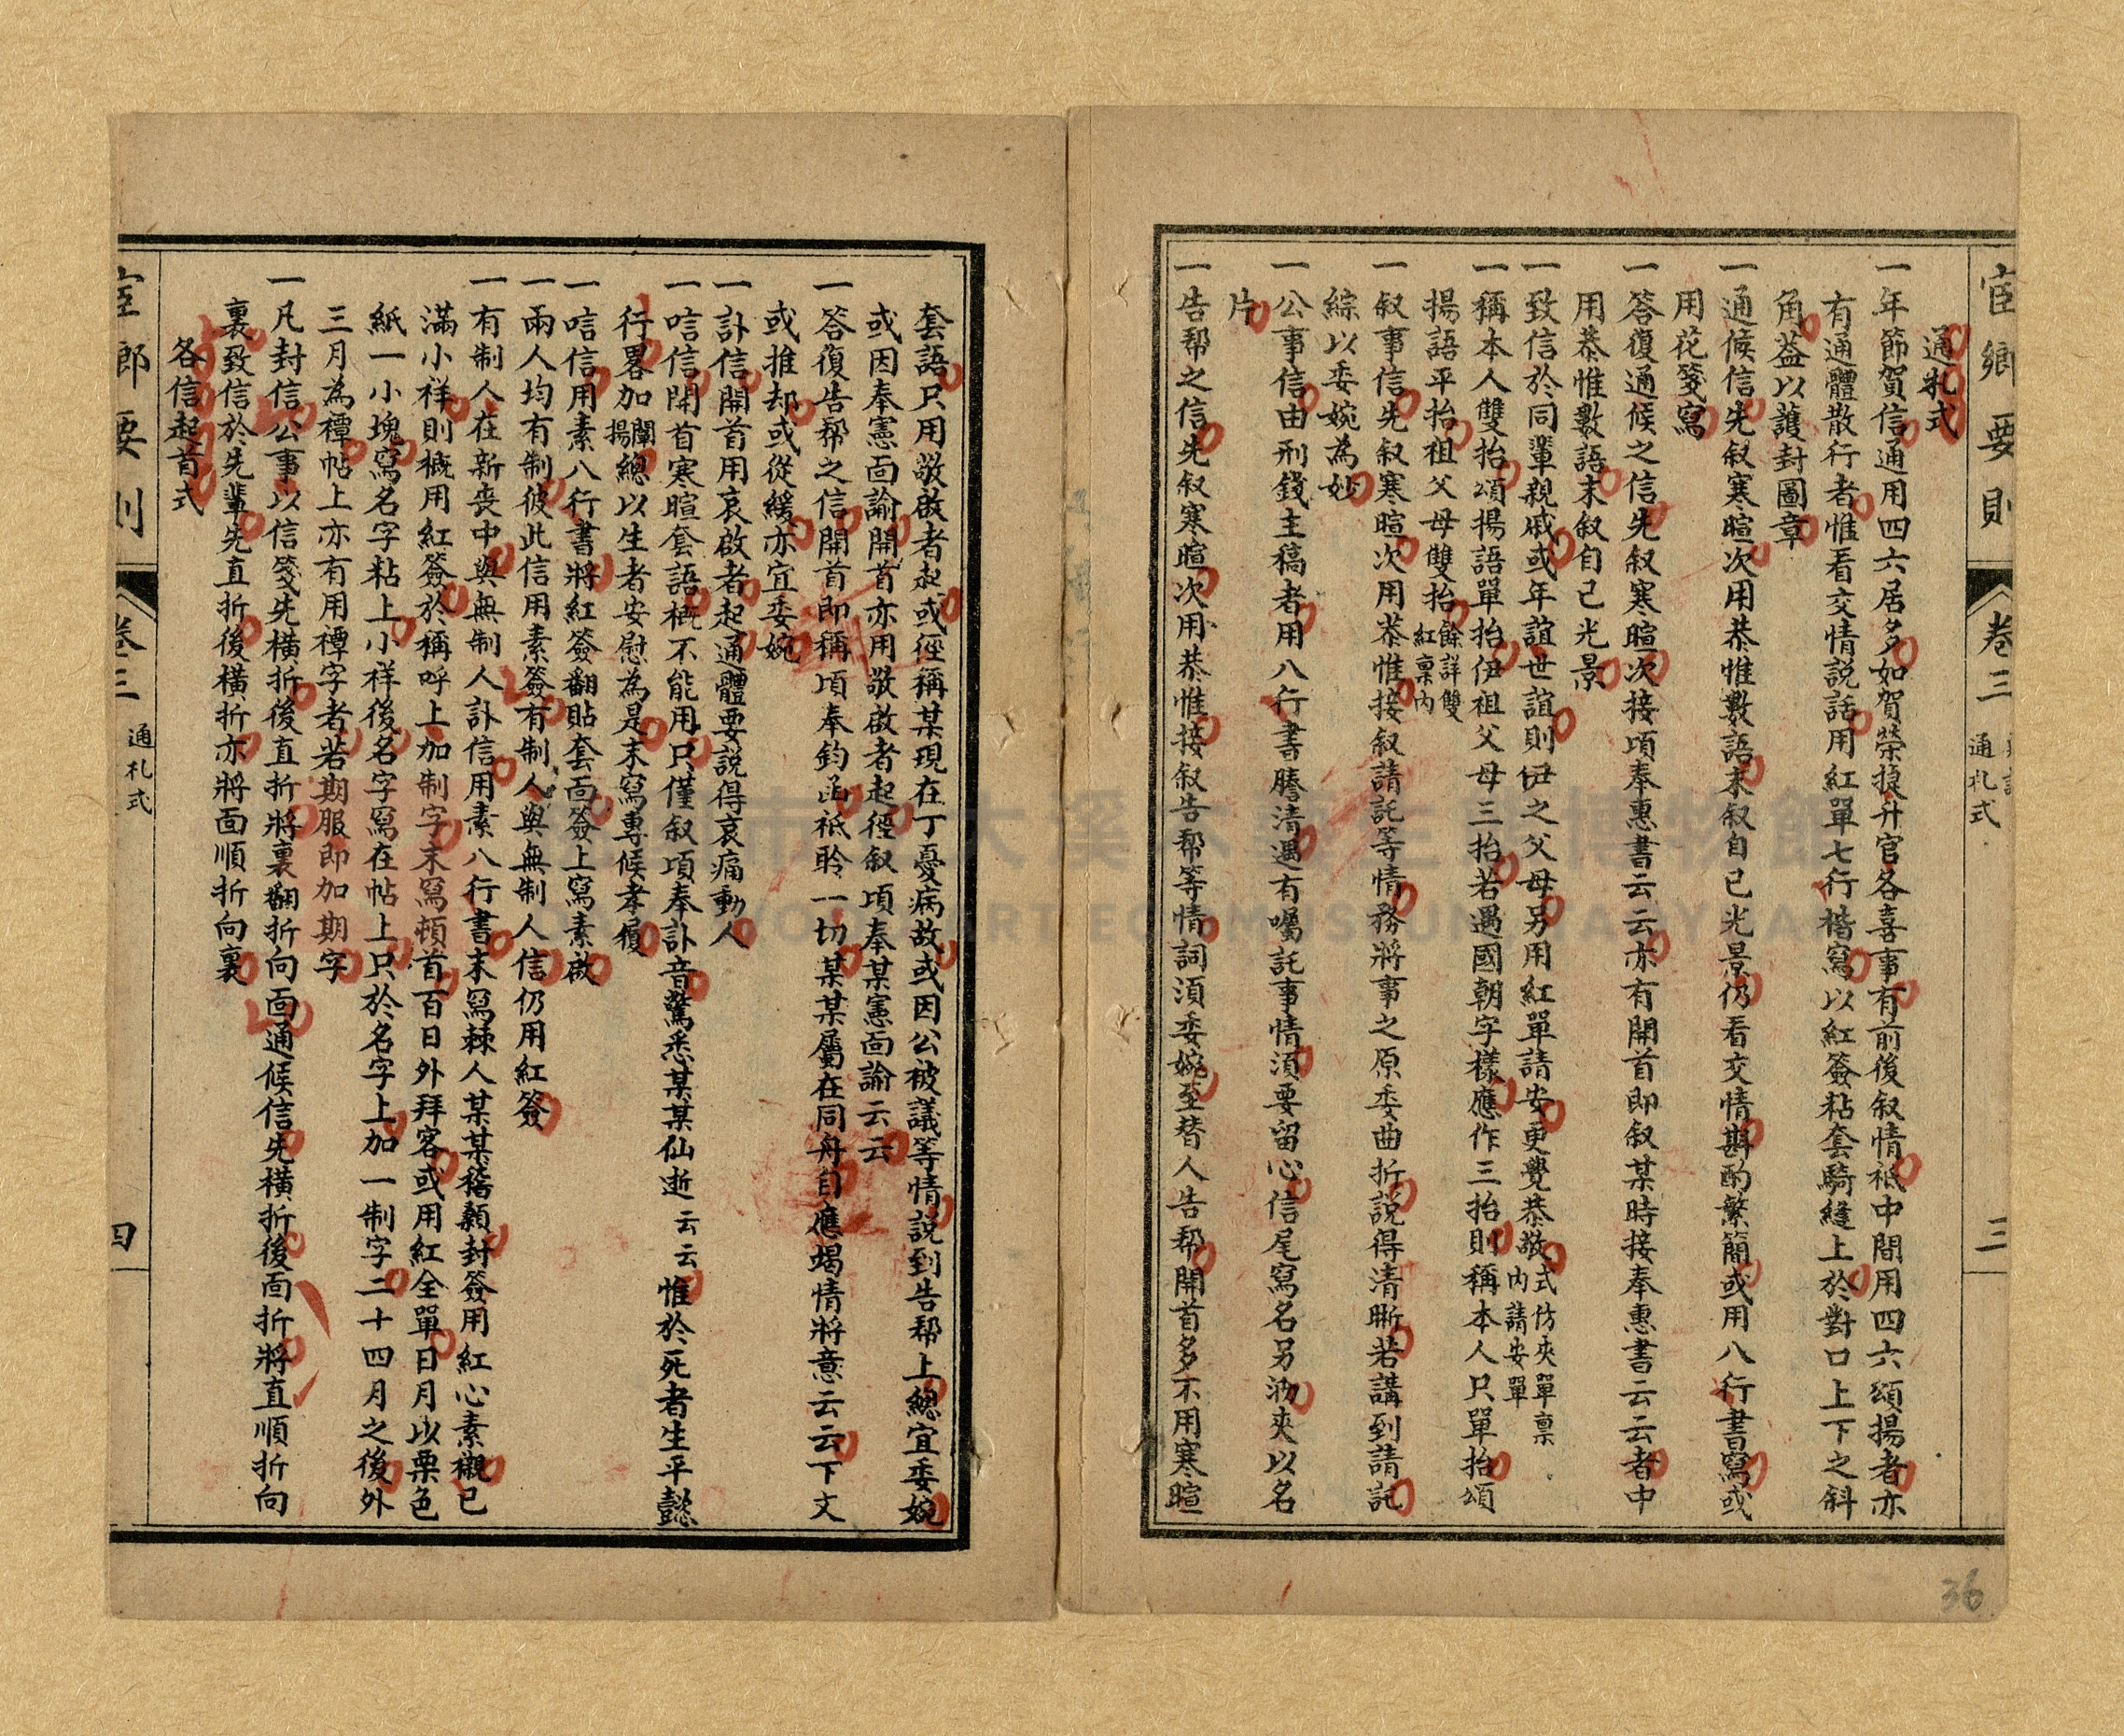 宦鄉要則
卷三
通札式
三
通札式
一年節賀信通用四六居多如賀榮擢升官各喜事有前後叙情祗中間用四六頌揚者亦
有通體散行者惟看交情說話用紅單七行楷寫以紅簽粘套騎縫上於對口上下之斜
角葢以護封圖章
一通候信先叙寒暄次用恭惟數語末叙自己光景仍看交情斟酌繁簡或用八行書寫或
用花箋寫
一答復通候之信先叙寒暄次接項奉惠書云云亦有開首即叙某時接奉惠書云云者中
用恭惟數語末叙自己光景
一致信於同輩親戚或年誼世誼則伊之父母另用紅單請安更覺恭敬式仿夾單禀內請安單
一稱本人雙抬頌揚語單抬伊祖父母三抬若遇國朝字樣應作三抬則稱本人只單抬頌
揚語平抬祖父母雙抬餘詳雙紅禀內
一叙事信先叙寒暄次用恭惟接叙請託等情務將事之原委曲折說得清晰若講到請託
綜以委婉為妙
一公事信由刑錢主稿者用八行書謄清遇有囑託事情須要留心信尾寫名另泐夾以名
片
一告帮之信先叙寒暄次用恭惟接叙告帮等情詞須委婉至替人告帮開首多不用寒暄
套語只用敬啟者起或徑稱某現在丁憂病故或因公被議等情說到告帮上總宜委婉
或因奉憲面諭開首亦用敬啟者起徑叙項奉某憲面諭云云
一答復告帮之信開首即稱項奉鈞函祗聆一切某某屬在同舟自應竭情將意云云下文
或推却或從緩亦宜委婉
一訃信開首用哀啟者起通體要說得哀痛動人
一唁信開首寒暄套語概不能用只僅叙項奉訃音驚悉某某仙逝云云惟於死者生平懿
行畧加闡揚總以生者安慰為是末寫專候孝履
一唁信用素八行書將紅簽翻貼套面簽上寫素啟
一兩人均有制彼此信用素簽有制人與無制人信仍用紅簽
一有制人在新喪中與無制人訃信用素八行書末寫棘人某某稽顙封簽用紅心素襯已
滿小祥則概用紅簽於稱呼上加制字末寫頓首百日外拜客或用紅全單日月以栗色
紙一小塊寫名字粘上小祥後名字寫在帖上只於名字上加一制字二十四月之後外
三月為禫帖上亦有用禫字者若期服即加期字
一凡封信公事以信箋先橫折後直折將裏翻折向面通候信先橫折後面折將直順折向
裏致信於先輩先直折後橫折亦將面順折向裏
各信起首式
卷三
通札式
四
36